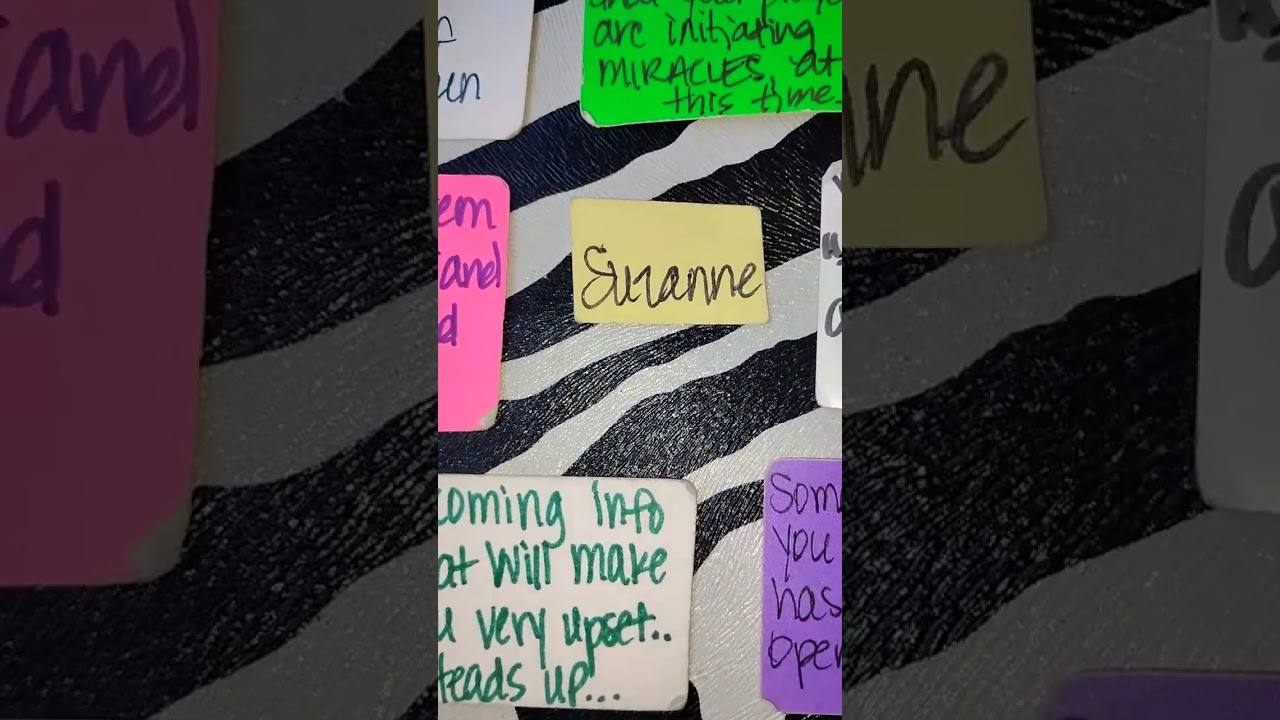 are initiating
MIRACLES, at
this time.
un
em
and
d
Suzanne
coming info
at will make
u very upset..
Heads up...
Som
you
has
oper